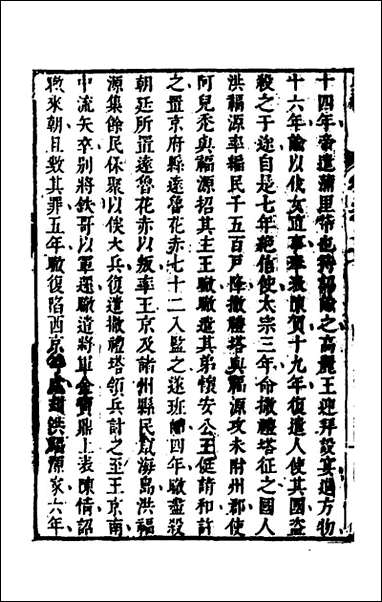 十四年帝遣蒲里帒也持詔諭之高麗王迎拜設宴過方物
十六年諭以伐女直事奉表陳賀十九年復遣人使其國盗
殺之于途自是七年絶信使太宗三年命撒禮塔征之國人
洪福源率編民千五百戸降撒禮塔與福源攻未附州郡使
阿兒禿與福源招其主王㬚㬚遣其弟懷安公王侹請和許
之置京府縣達魯花赤七十二人監之遂班師四年㬚盡殺
朝廷所置達魯花赤以叛率王京及諸州縣民竄海島洪福
源集餘民保聚以俟大兵復遣撒禮塔領兵討之至王京南
中流矢卒别將鉄哥以軍還㬚遣將軍金寶鼎上表陳情詔
㬚來朝且數其罪五年㬚復陷西京洪福源家六年